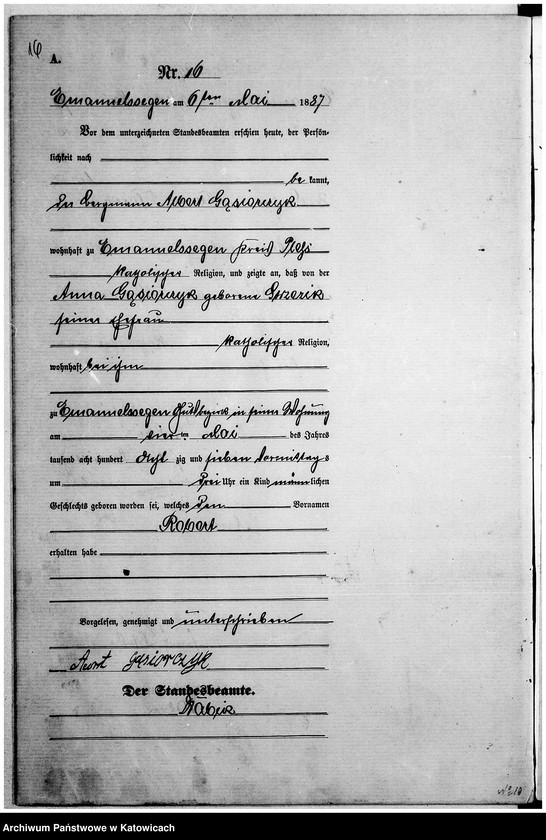 16
A.
Nr. 16
Emanuelssegen am 6ten Mai 1887
Vor dem unterzeichneten Standesbeamten erschien heute, der Persön-
lichkeit nach
be kannt,
der Bergmann Albert Gąsiorczyk
wohnhaft zu Emanuelssegen Kreis Pleß
katholischer Religion, und zeigte an, daß von der
Anna Gąsiorczyk geborene
seiner Ehefrau
katholischer Religion,
wohnhaft bei ihm
zu Emanuelssegen Gutsbezirk in seiner Wohnung
am vier ten Mai des Jahres
tausend acht hundert acht zig und sieben Vormittags
um drei Uhr ein Kind männlichen
Geschlechts geboren worden sei, welches den Vornamen
Robert
erhalten habe
Vorgelesen, genehmigt und unterschrieben
Gąsiorczyk
Der Standesbeamte.
Archiwum Państwowe w Katowicach